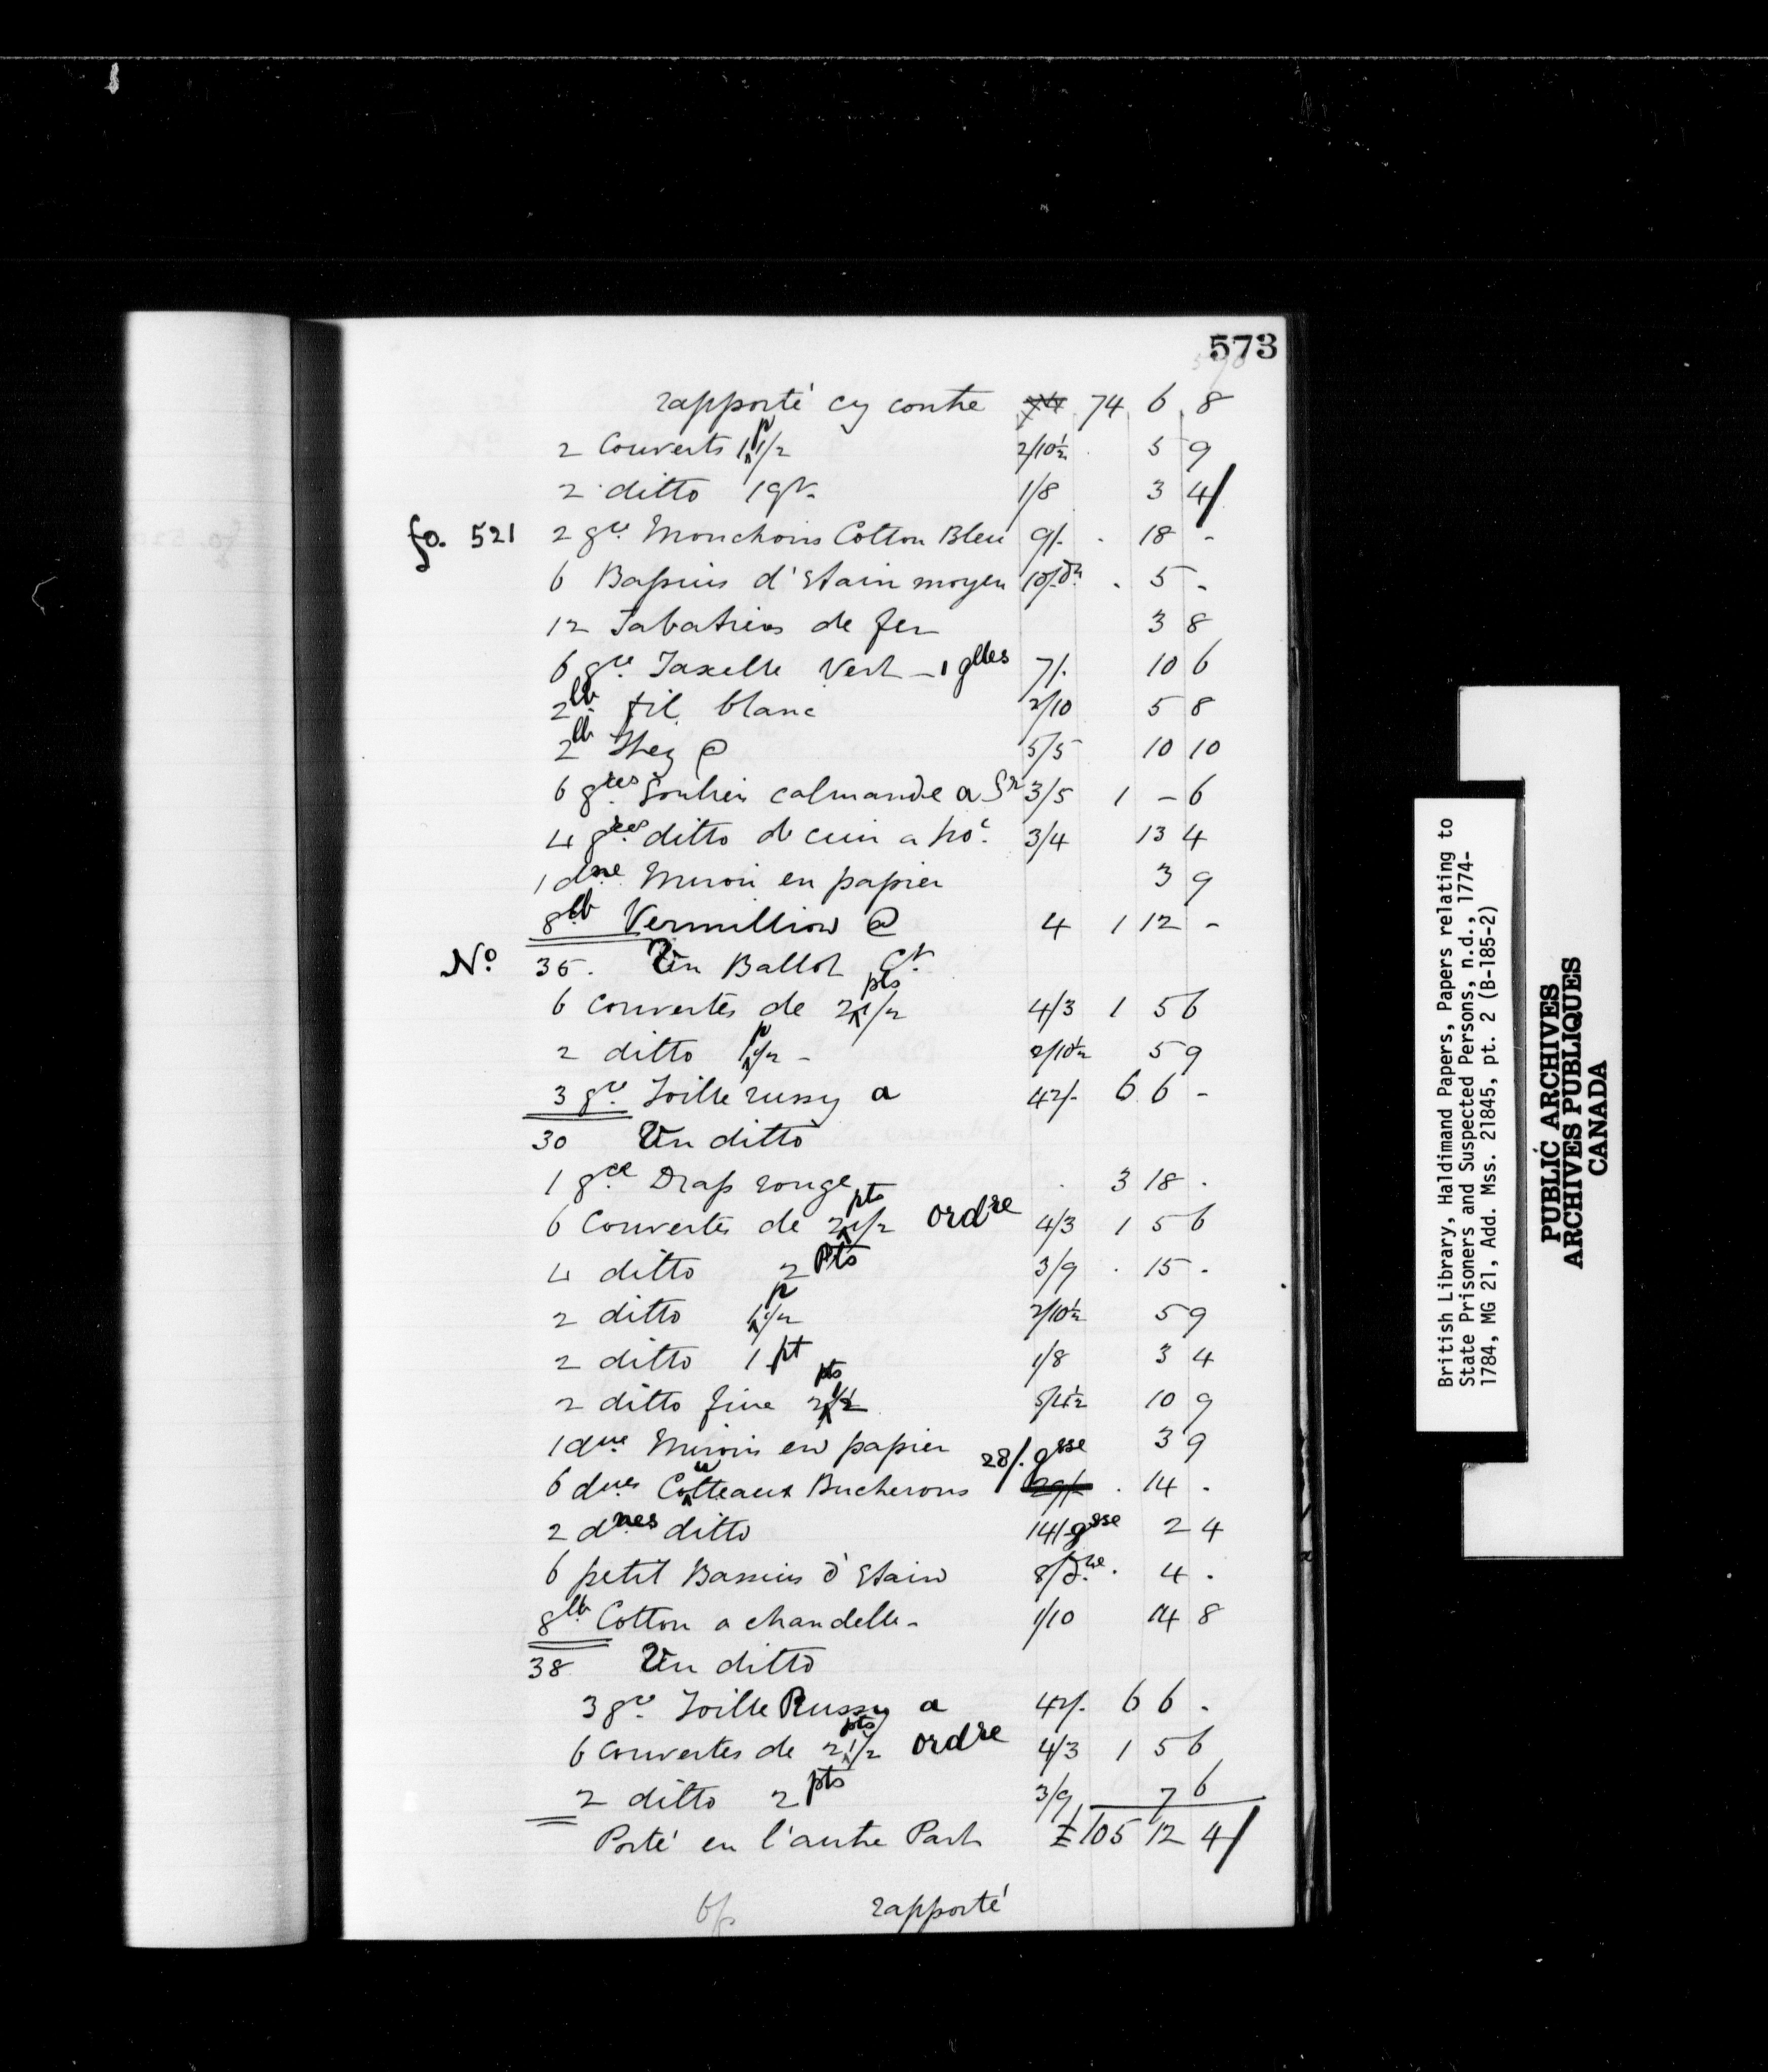 573
rapporté cy contre 74 6 8
2 Couverts 1 p 1/2 2/10½ 5 9
2 ditto 1 1/8 3 4/
fo. 521 2 Mouchoirs Cotton Bleu 9/. 18 -
6 Bassins d'Etain moyen 10/. 5 -
12 Tabatieres de fer 3 8
6 Vert 7/. 10 6
2 lb fil blanc 2/10 5 8
2 lb They @ 5/5 10 10
6 Soulier calmande a 3/5 1 - 6
4 ditto de cuir a 3/4 13 4
1 dne Miroir en papier 3 9
8 lb Vermillion @ 4 1 12 -
No 36. Un Ballot Ct
6 Couvertes de 2 pts 1/2 4/3 1 5 6
2 ditto 1 p 1/2 - 2/10½ 5 9
3 Toille russy a 42/- 6 6 -
30 Un ditto
1 gce Drap rouge 3 18 .
6 Couvertes de 2 pts 1/2 ordre 4/3 1 5 6
4 ditto 2 Pts 3/9 15 .
2 ditto 1 p 1/2 2/10½ 5 9
2 ditto 1 pt 1/8 3 4
2 ditto fine 2 pts 1/2 5/4½ 10 9
1 dne Miroirs en papier 3 9
6 dnes Coutteaux Bucherons 28/. gsse 14 .
2 dnes ditto 14/ gsse 2 4
6 petit Bassins d'Etain 8/ 4 .
8 lb Cotton a chandelle - 1/10 14 8
38 Un ditto
3 Toille Russy a 42/. 6 6 .
6 Couvertes de 2 pts 1/2 ordre 4/3 1 5 6
2 ditto 2 pts 3/9 7 6
Porté en l'autre Part £ 105 12 4/
rapporté
British Library, Haldimand Papers, Papers relating to
State Prisoners and Suspected Persons, n.d., 1774-
1784, MG 21, Add. Mss. 21845, pt. 2 (B-185-2)
PUBLIC ARCHIVES
ARCHIVES PUBLIQUES
CANADA